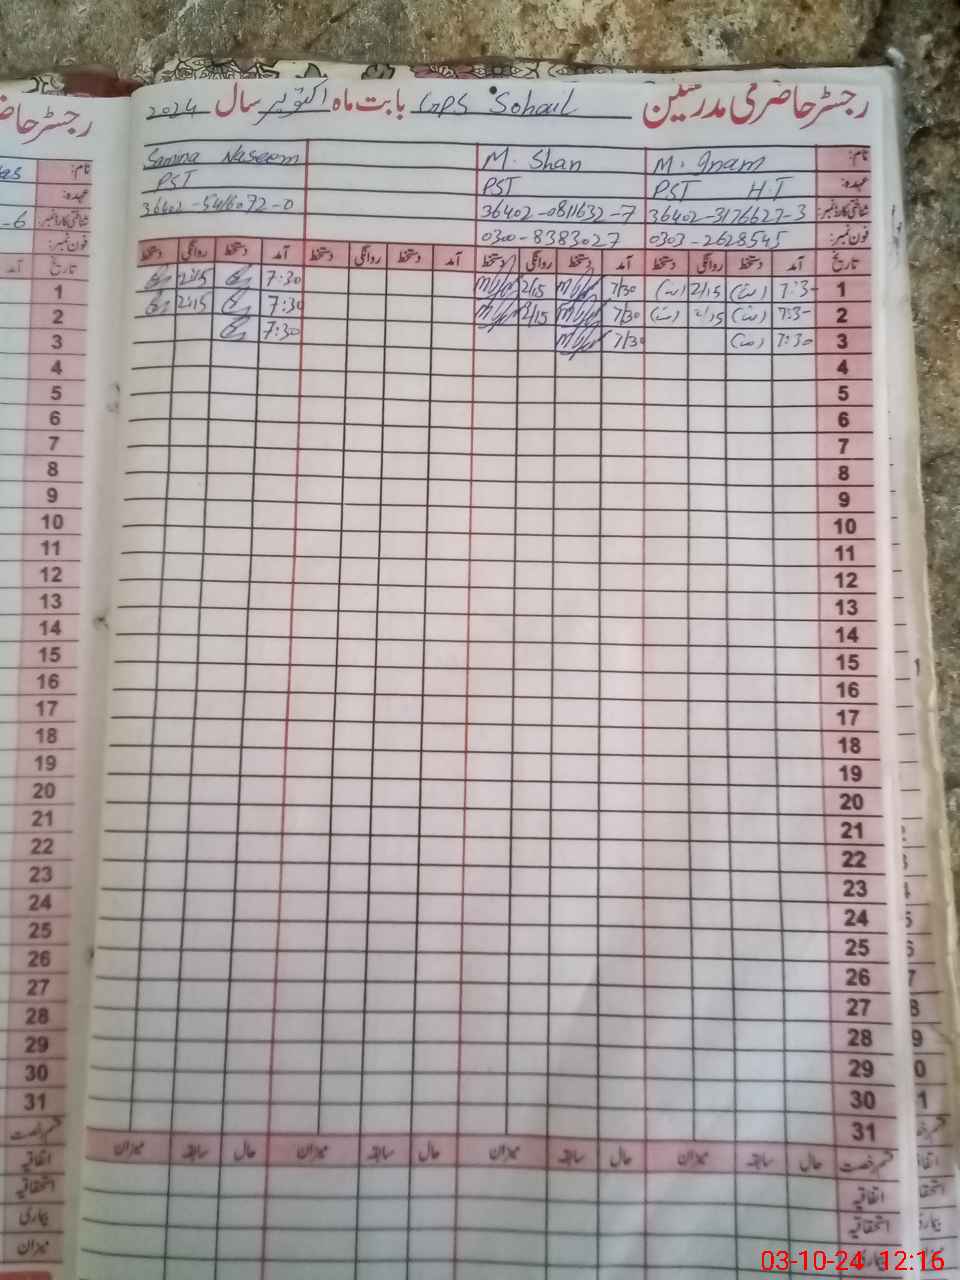 رجسٹر حاضری مدرسین GPS Sohail بابت ماہ اکتوبر سال 2024
نام: M. Inam M. Shan Samina Naseem
عہدہ: PST H.T PST PST
شناختی کارڈ نمبر: 36402-3176627-3 36402-0811632-7 36402-5416072-0
فون نمبر: 0303-2628545 0300-8383027
تاریخ آمد دستخط روانگی دستخط آمد دستخط روانگی دستخط آمد دستخط روانگی دستخط آمد دستخط روانگی دستخط
1 7:3- 2/15 7/30 2/15 7:30 2:15
2 7:3- 2/15 7/30 2/15 7:30 2:15
3 7:30 7/30 7:30
4
5
6
7
8
9
10
11
12
13
14
15
16
17
18
19
20
21
22
23
24
25
26
27
28
29
30
31
قسم رخصت حال سابقہ میزان حال سابقہ میزان حال سابقہ میزان حال سابقہ میزان
اتفاقیہ
استحقاقیہ
بیماری
رجسٹر حاضر
نام:
عہدہ:
شناختی کارڈ نمبر: -6
فون نمبر:
تاریخ آمد
1
2
3
4
5
6
7
8
9
10
11
12
13
14
15
16
17
18
19
20
21
22
23
24
25
26
27
28
29
30
31
قسم رخصت
اتفاقیہ
استحقاقیہ
بیماری
میزان
03-10-24 12:16